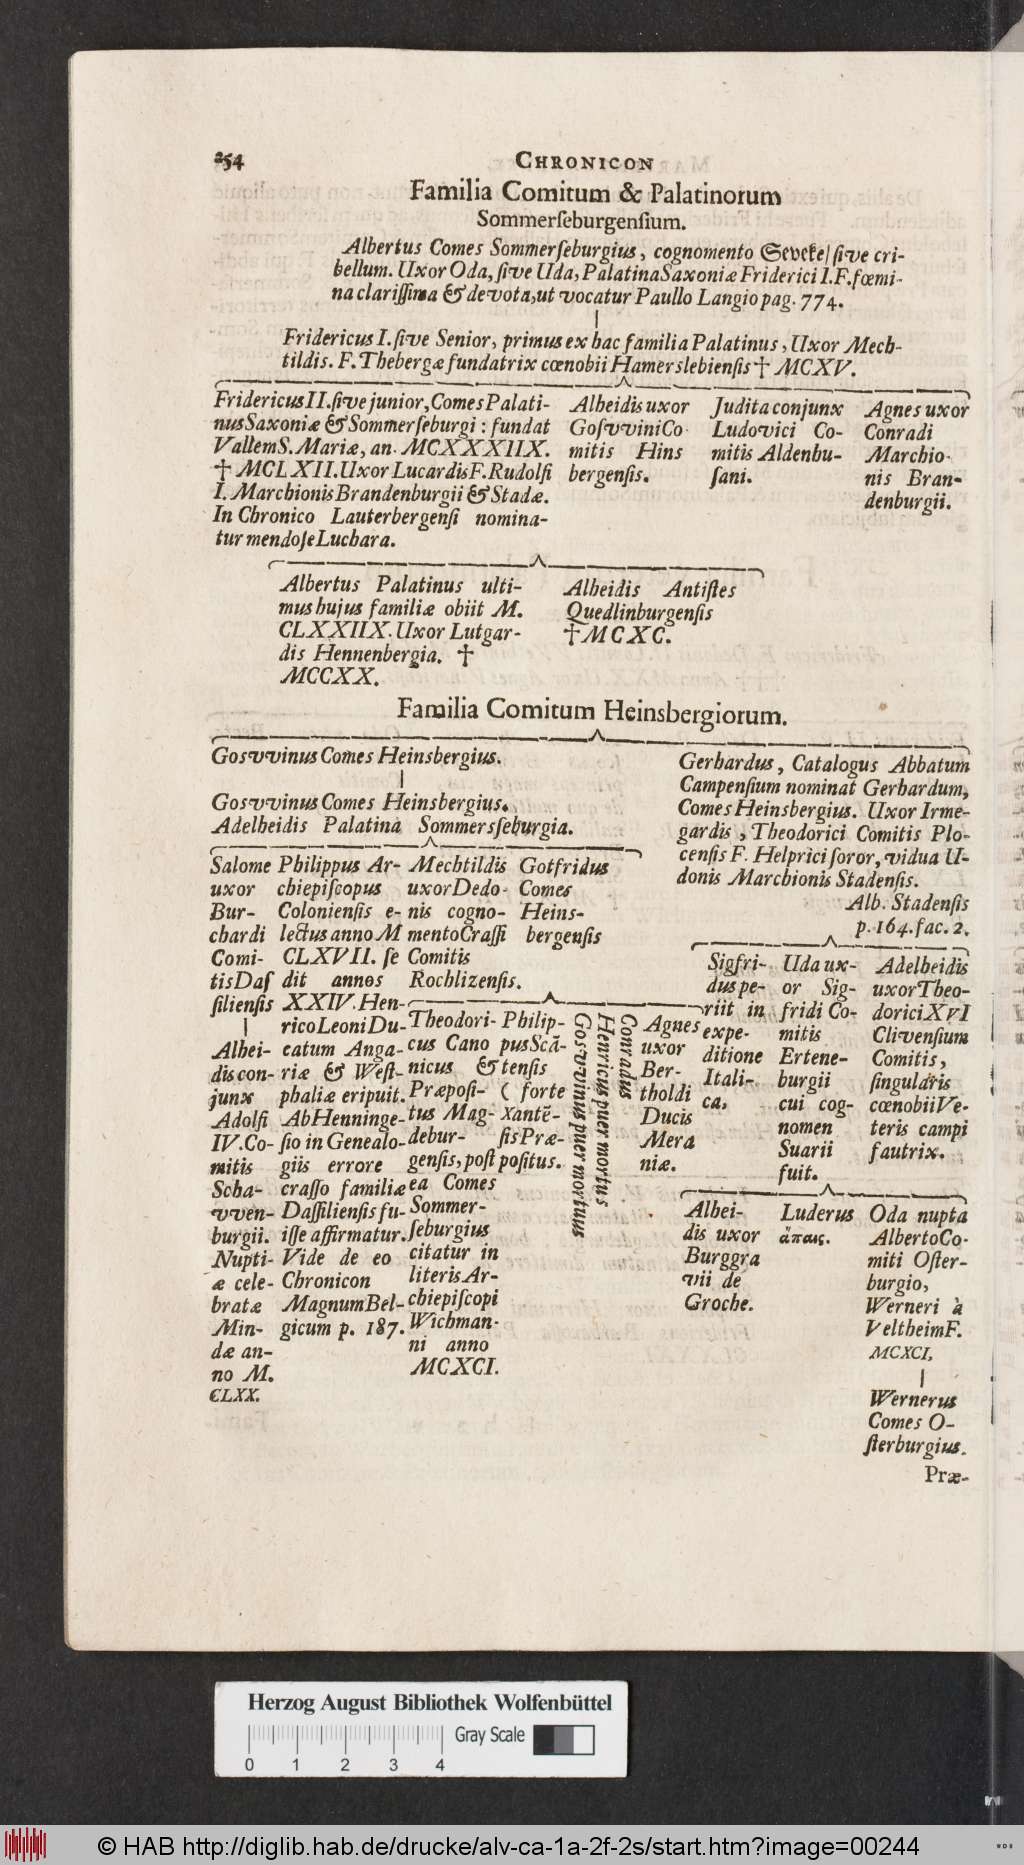 254
CHRONICON
Familia Comitum & Palatinorum
Sommerſeburgenſium.
Albertus Comes Sommerſeburgius, cognomento Seveke/ ſive cri-
bellum. Uxor Oda, ſive Uda, Palatina Saxoniæ Friderici I. F. fœmi-
na clariſſima & devota, ut vocatur Paullo Langio pag. 774.
Fridericus I. ſive Senior, primus ex hac familia Palatinus, Uxor Mech-
tildis. F. Thebergæ fundatrix cœnobii Hamerslebienſis † MCXV.
Fridericus II. ſive junior, Comes Palati-
nus Saxoniæ & Sommerſeburgi: fundat
Vallem S. Mariæ, an. MCXXXIIX.
† MCLXII. Uxor Lucardis F. Rudolfi
I. Marchionis Brandenburgii & Stadæ.
In Chronico Lauterbergenſi nomina-
tur mendoſe Luchara.
Alheidis uxor
Goſvvini Co-
mitis Hins
bergenſis.
Judita conjunx
Ludovici Co-
mitis Aldenbu-
ſani.
Agnes uxor
Conradi
Marchio-
nis Bran-
denburgii.
Albertus Palatinus ulti-
mus hujus familiæ obiit M.
CLXXIIX. Uxor Lutgar-
dis Hennenbergia. †
MCCXX.
Alheidis Antiſtes
Quedlinburgenſis
† MCXC.
Familia Comitum Heinsbergiorum.
Gosvvinus Comes Heinsbergius.
Gosvvinus Comes Heinsbergius.
Adelheidis Palatina Sommersſeburgia.
Gerhardus, Catalogus Abbatum
Campenſium nominat Gerhardum,
Comes Heinsbergius. Uxor Irme-
gardis, Theodorici Comitis Plo-
cenſis F. Helprici ſoror, vidua U-
donis Marchionis Stadenſis.
Alb. Stadenſis
p. 164. fac. 2.
Salome
uxor
Bur-
chardi
Comi-
tis Daſ
ſilienſis
Alhei-
dis con-
junx
Adolfi
IV. Co-
mitis
Scha-
vven-
burgii.
Nupti-
æ cele-
bratæ
Min-
dæ an-
no M.
CLXX.
Philippus Ar-
chiepiſcopus
Colonienſis e-
lectus anno M
CLXVII. ſe
dit annos
XXIV. Hen-
rico Leoni Du-
catum Anga-
riæ & Weſt-
phaliæ eripuit.
Ab Henninge-
ſio in Genealo-
giis errore
craſſo familiæ
Daſſilienſis fu-
iſſe affirmatur.
Vide de eo
Chronicon
Magnum Bel-
gicum p. 187.
Mechtildis
uxor Dedo-
nis cogno-
mento Craſſi
Comitis
Rochlizenſis.
Gotfridus
Comes
Heins-
bergenſis
Theodori-
cus Cano
nicus &
Præpoſi-
tus Mag-
debur-
genſis, poſt
ea Comes
Sommer-
ſeburgius
citatur in
literis Ar-
chiepiſcopi
Wichman-
ni anno
MCXCI.
Philip-
pus Scã-
tenſis
( forte
Xantẽ-
ſis Præ-
poſitus.
Gosvvinus puer mortuus
Henricus puer mortus
Conradus
Agnes
uxor
Ber-
tholdi
Ducis
Mera
niæ.
Sigfri-
dus pe-
riit in
expe-
ditione
Itali-
ca,
Uda ux-
or Sig-
fridi Co-
mitis
Ertene-
burgii
cui cog-
nomen
Suarii
fuit.
Adelheidis
uxor Theo-
dorici XVI
Clivenſium
Comitis,
ſingularis
cœnobii Ve-
teris campi
fautrix.
Alhei-
dis uxor
Burggra
vii de
Groche.
Luderus
ἄπαις.
Oda nupta
Alberto Co-
miti Oſter-
burgio,
Werneri à
Veltheim F.
MCXCI,
Wernerus
Comes O-
ſterburgius.
Præ-
Herzog August Bibliothek Wolfenbüttel
Gray Scale
0 1 2 3 4
© HAB http://diglib.hab.de/drucke/alv-ca-1a-2f-2s/start.htm?image=00244